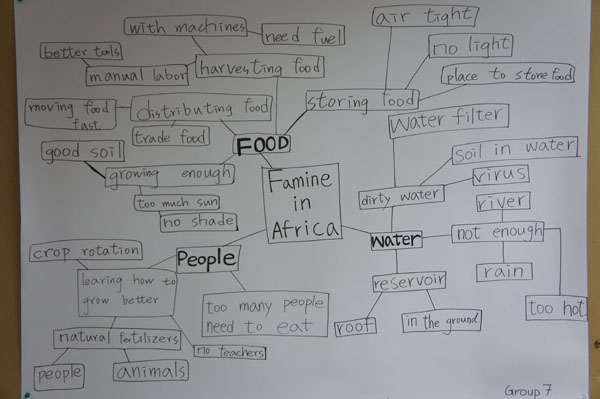 air tight
with machines
need fuel
no light
better tools
manual labor
harvesting food
place to store food
moving food
fast
distributing food
storing food
Water filter
trade food
FOOD
good soil
soil in water
growing enough
Famine
in
Africa
virus
dirty water
too much sun
river
no shade
not enough
Water
crop rotation
People
rain
learing how to
grow better
reservoir
too many people
need to eat
too hot
roof
in the ground
natural fertilizers
no teachers
people
animals
Group 7